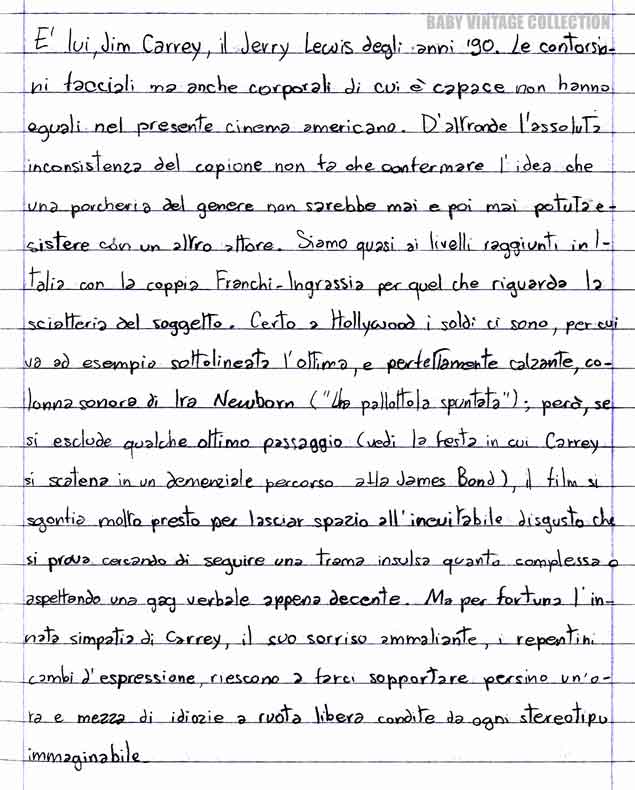 BABY VINTAGE COLLECTION
E' lui, Jim Carrey, il Jerry Lewis degli anni '90. Le contorsio-
ni facciali ma anche corporali di cui è capace non hanno
eguali nel presente cinema americano. D'altronde l'assoluta
inconsistenza del copione non fa che confermare l'idea che
una porcheria del genere non sarebbe mai e poi mai potuta e-
sistere con un altro attore. Siamo quasi ai livelli raggiunti in I-
talia con la coppia Franchi-Ingrassia per quel che riguarda la
sciatteria del soggetto. Certo a Hollywood i soldi ci sono, per cui
va ad esempio sottolineata l'ottima, e perfettamente calzante, co-
lonna sonora di Ira Newborn ("Una pallottola spuntata"); però, se
si esclude qualche ottimo passaggio (vedi la festa in cui Carrey
si scatena in un demenziale percorso alla James Bond), il film si
sgonfia molto presto per lasciar spazio all'inevitabile disgusto che
si prova cercando di seguire una trama insulsa quanto complessa o
aspettando una gag verbale appena decente. Ma per fortuna l'in-
nata simpatia di Carrey, il suo sorriso ammaliante, i repentini
cambi d'espressione, riescono a farci sopportare persino un'o-
ra e mezza di idiozie a ruota libera condite da ogni stereotipo
immaginabile